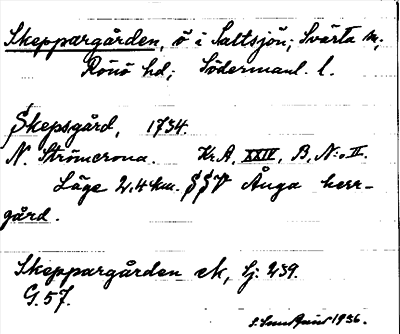 Skeppargården, ö i Saltsjön; Svärta sn;
Rönö hd; Södermanl. l.
Skepsgård, 1734.
N. Strömcrona. Kr.A. XXIV, B, N:o II.
Läge 2,4 km. SSV Ånga herr-
gård.
Skeppargården ek, Gj: 239.
G. 57.
1936.